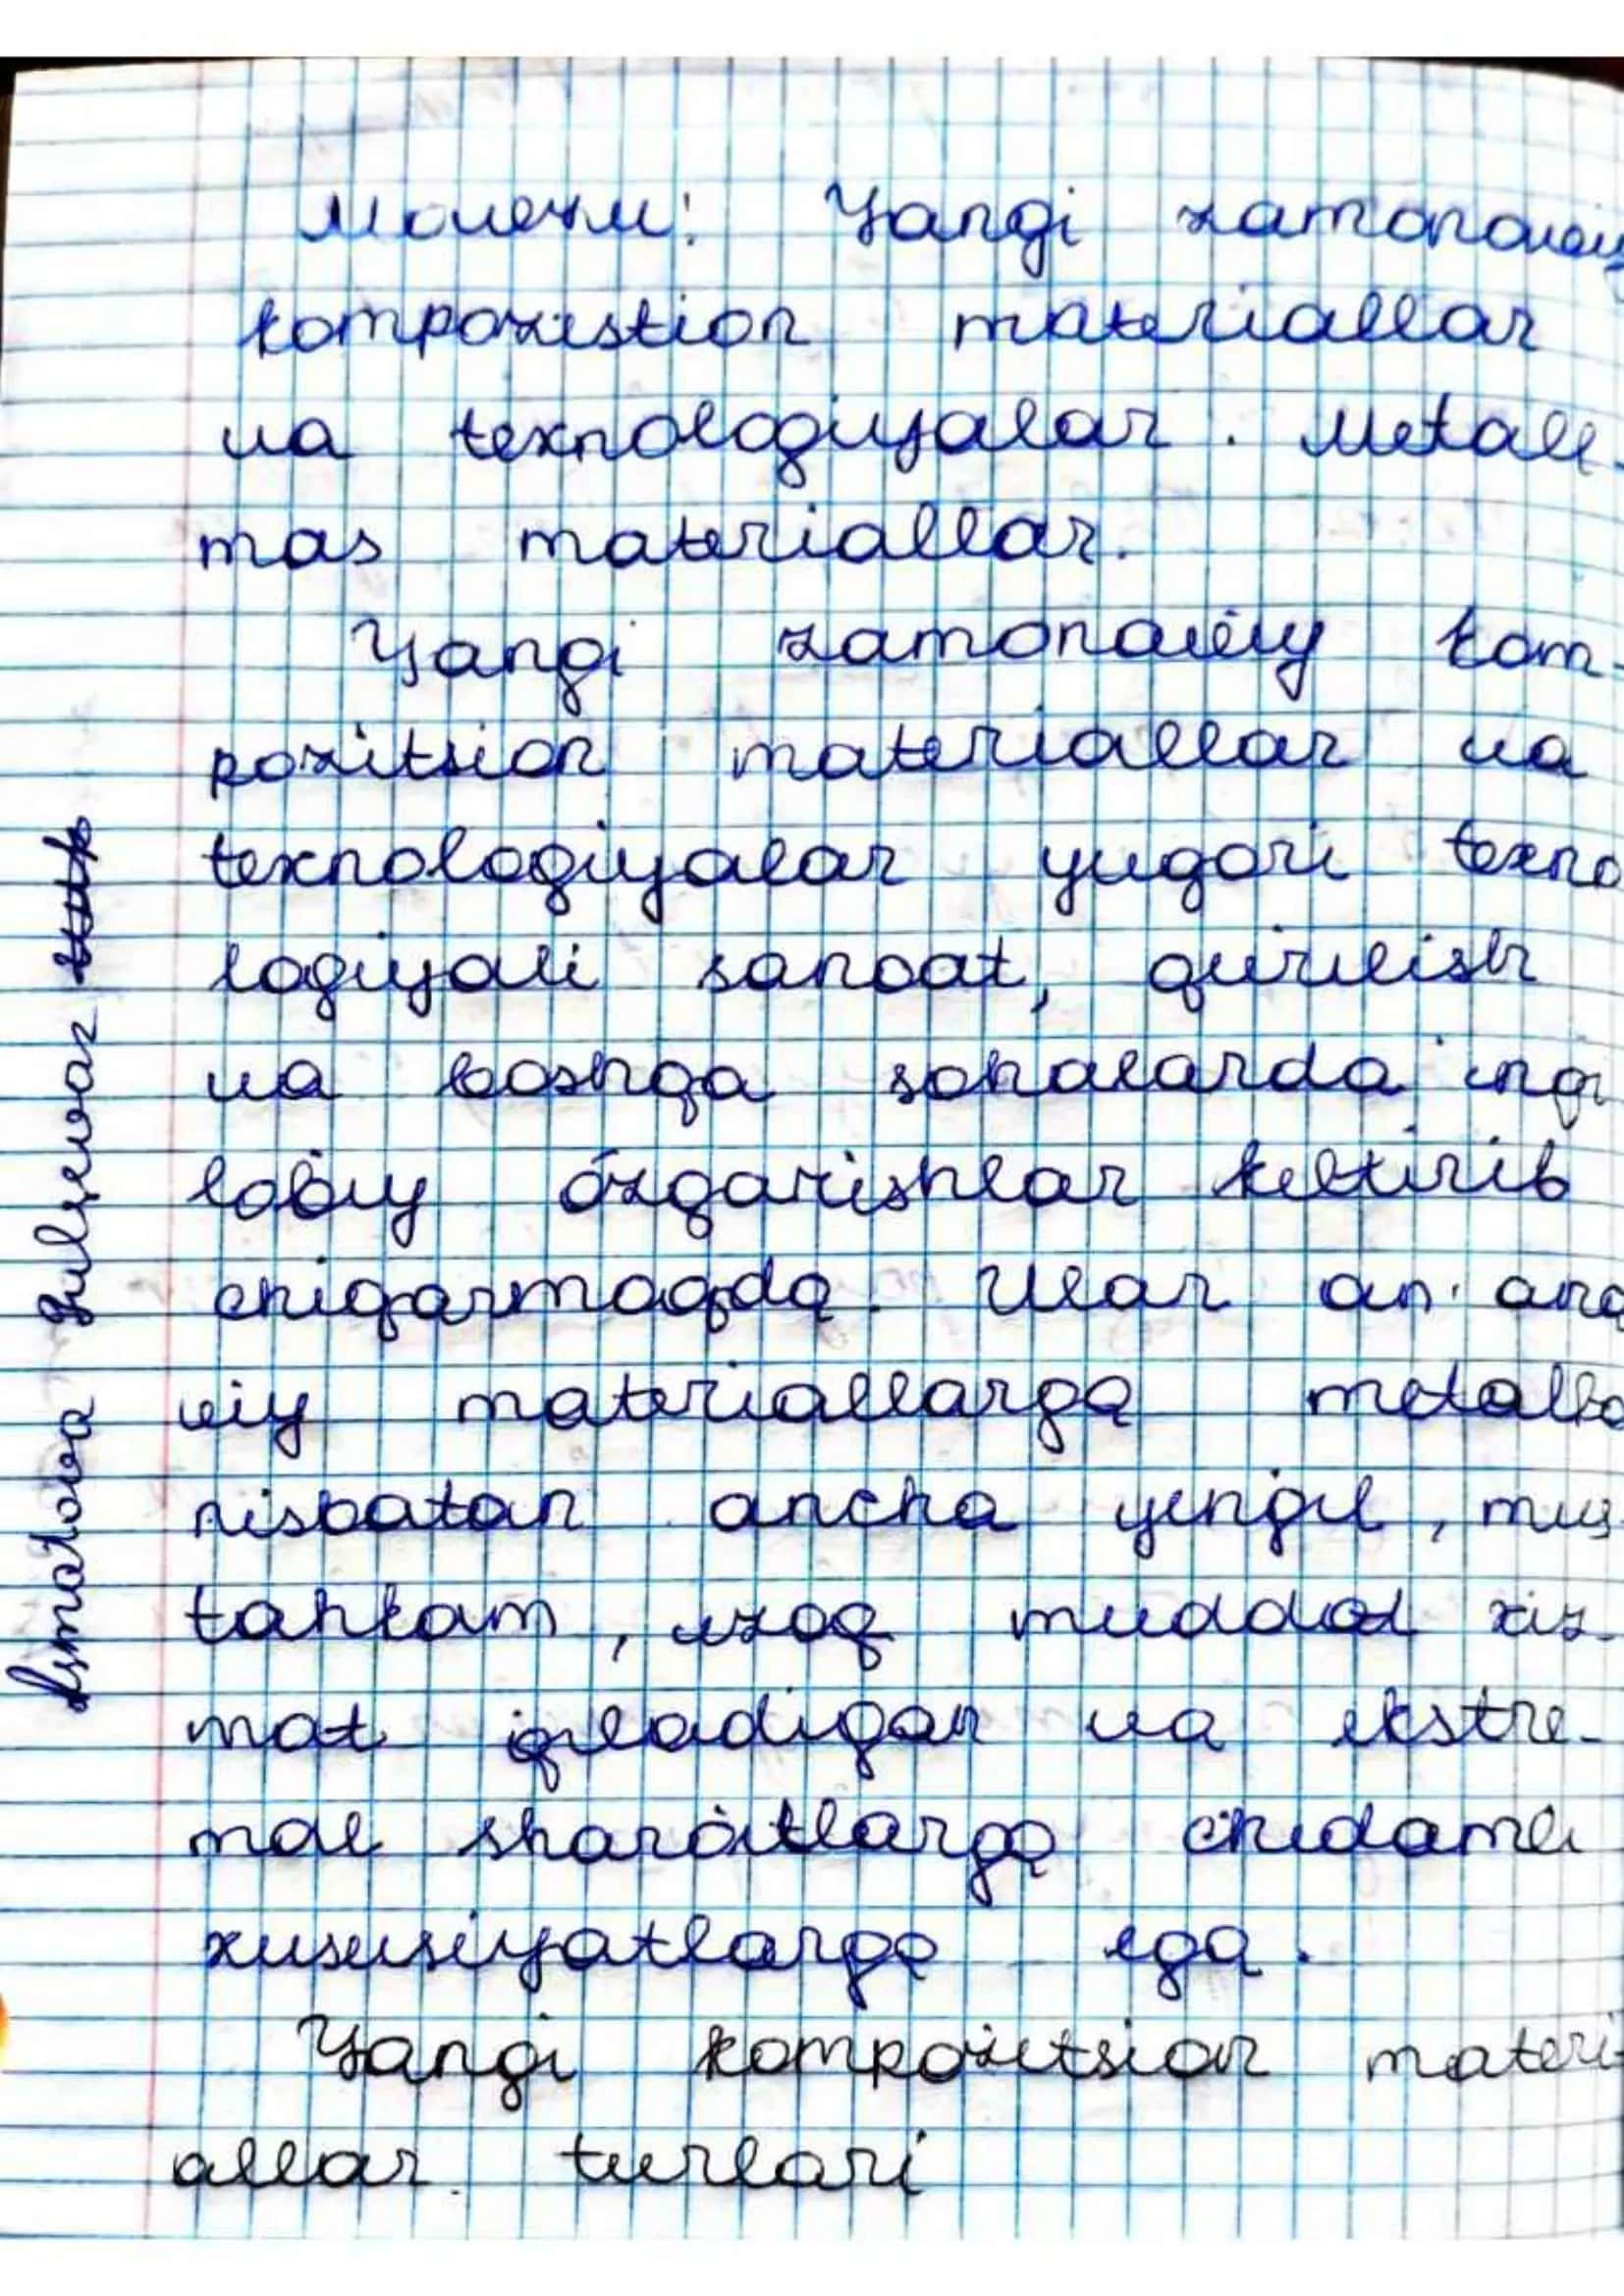 Mavzu: Yangi zamonaviy
kompozistion materiallar
va texnologiyalar. Metall
mas materiallar.
Yangi zamonaviy kom-
pozitsion materiallar va
texnologiyalar yuqori texno
logiyali sanoat, qurilish
va boshqa sohalarda inqi
lobiy ózgarishlar keltirib
chiqarmoqda. Ular an'ana
viy materiallarga metallga
nisbatan ancha yengil, mus-
tahkam, uzoq muddat xiz-
mat qiladigan va ekstre-
mal sharoitlarga chidamli
xususiyatlarga ega.
Yangi kompozitsion materi-
allar turlari
Ismatova Gulsevar